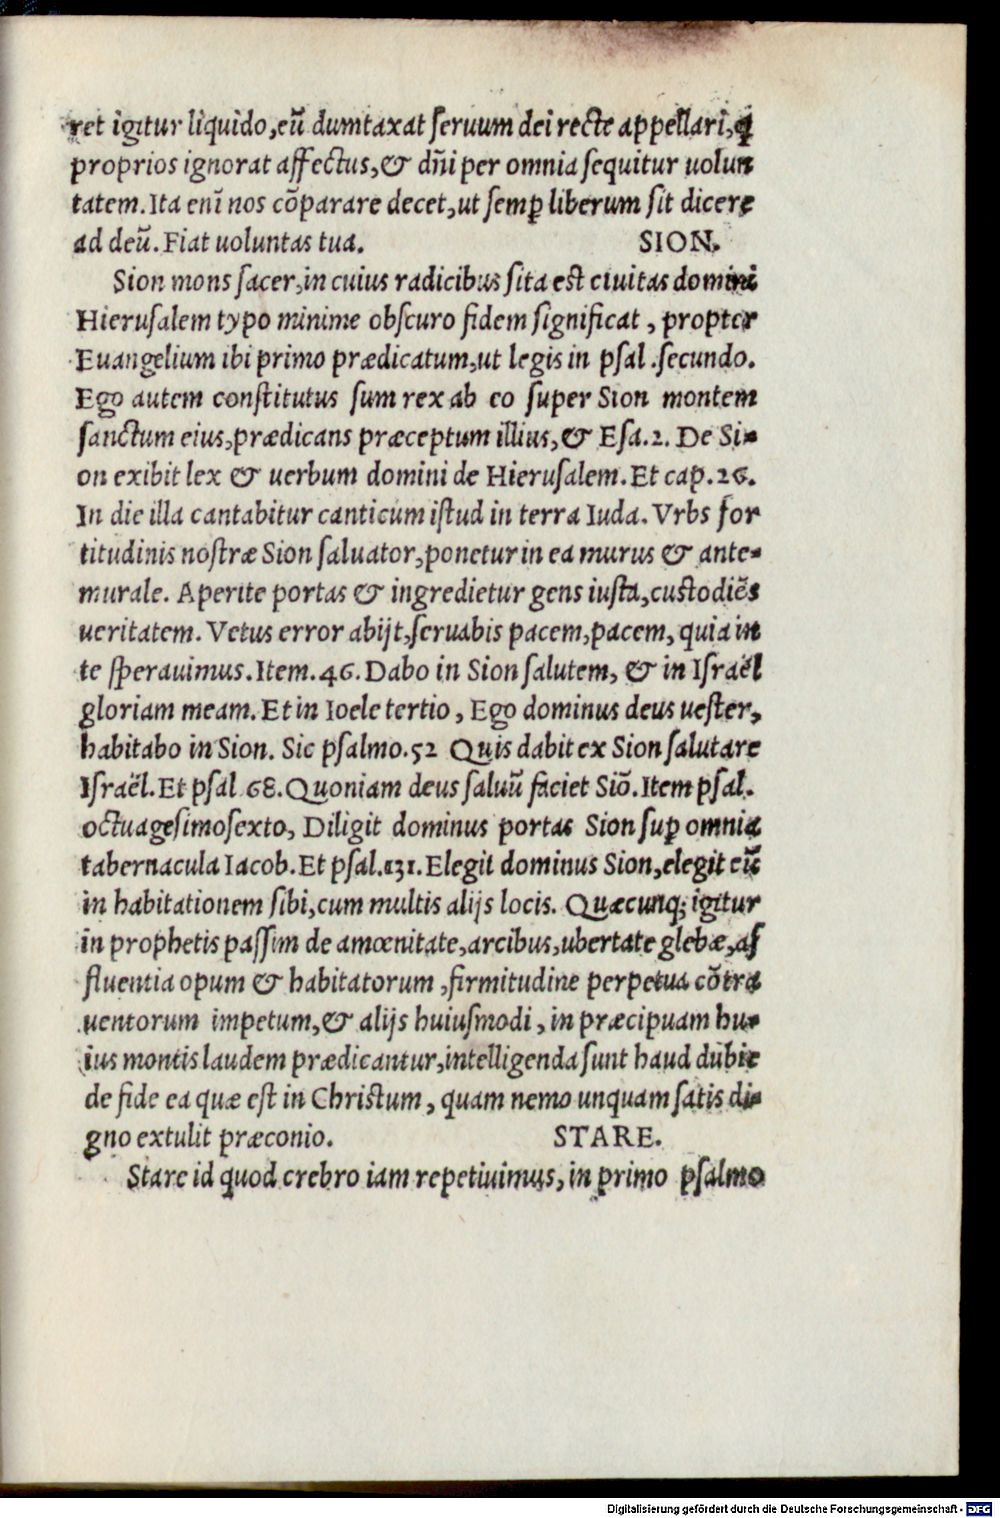 ret igitur liquido, eū dumtaxat seruum dei recte appellari, q̇
proprios ignorat affectus, & dñi per omnia sequitur uolun
tatem. Ita enī nos cōparare decet, ut semꝑ liberum sit dicere
ad deū. Fiat uoluntas tua. SION.
Sion mons sacer, in cuius radicibus sita est ciuitas domini
Hierusalem typo minime obscuro fidem significat, propter
Euangelium ibi primo prædicatum, ut legis in psal. secundo.
Ego autem constitutus sum rex ab eo super Sion montem
sanctum eius, prædicans præceptum illius, & Esa. 2. De Si-
on exibit lex & uerbum domini de Hierusalem. Et cap. 26.
In die illa cantabitur canticum istud in terra Iuda. Vrbs for
titudinis nostræ Sion saluator, ponetur in ea murus & ante-
murale. Aperite portas & ingredietur gens iusta, custodiēs
ueritatem. Vetus error abijt, seruabis pacem, pacem, quia in
te sperauimus. Item. 46. Dabo in Sion salutem, & in Israël
gloriam meam. Et in Ioele tertio, Ego dominus deus uester,
habitabo in Sion. Sic psalmo. 52 Quis dabit ex Sion salutare
Israël. Et psal 68. Quoniam deus saluū faciet Siō. Item psal.
octuagesimosexto, Diligit dominus portas Sion suꝑ omnia
tabernacula Iacob. Et psal. 131. Elegit dominus Sion, elegit eū
in habitationem sibi, cum multis alijs locis. Quæcunq; igitur
in prophetis passim de amœnitate, arcibus, ubertate glebæ, af
fluentia opum & habitatorum, firmitudine perpetua cōtra
uentorum impetum, & alijs huiusmodi, in præcipuam hu-
ius montis laudem prædicantur, intelligenda sunt haud dubie
de fide ea quæ est in Christum, quam nemo unquam satis di-
gno extulit præconio. STARE.
Stare id quod crebro iam repetiuimus, in primo psalmo
Digitalisierung gefördert durch die Deutsche Forschungsgemeinschaft - DFG